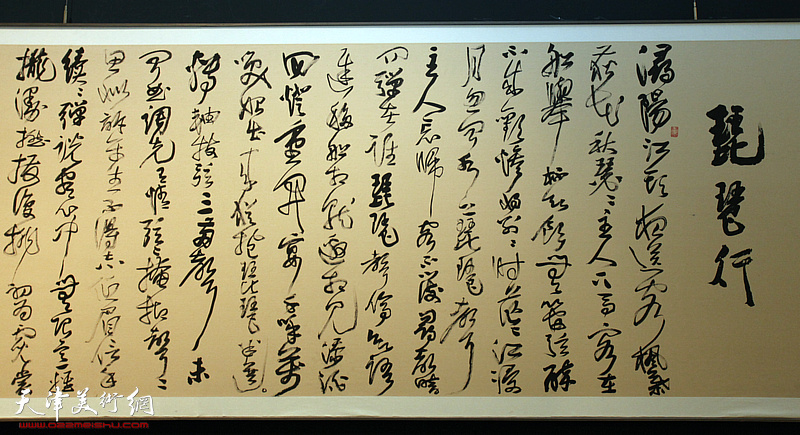 琵琶行
潯陽江頭夜送客楓葉
荻花秋瑟〻主人下馬客在
船舉酒欲飲無管弦醉
不成歡慘將別〻時茫〻江浸
月忽聞水上琵琶聲
主人忘歸客不發尋聲暗
問彈者誰琵琶聲停欲語
遲移船相近邀相見添酒
回燈重開宴千呼萬
喚始出來猶抱琵琶半遮
轉軸撥弦三兩聲未
成曲調先有情弦〻掩抑聲〻
思似訴平生不得志低眉信手
續〻彈說盡心中無限事輕
攏慢撚撥復挑初為霓裳
天津美術網
www.022meishu.com